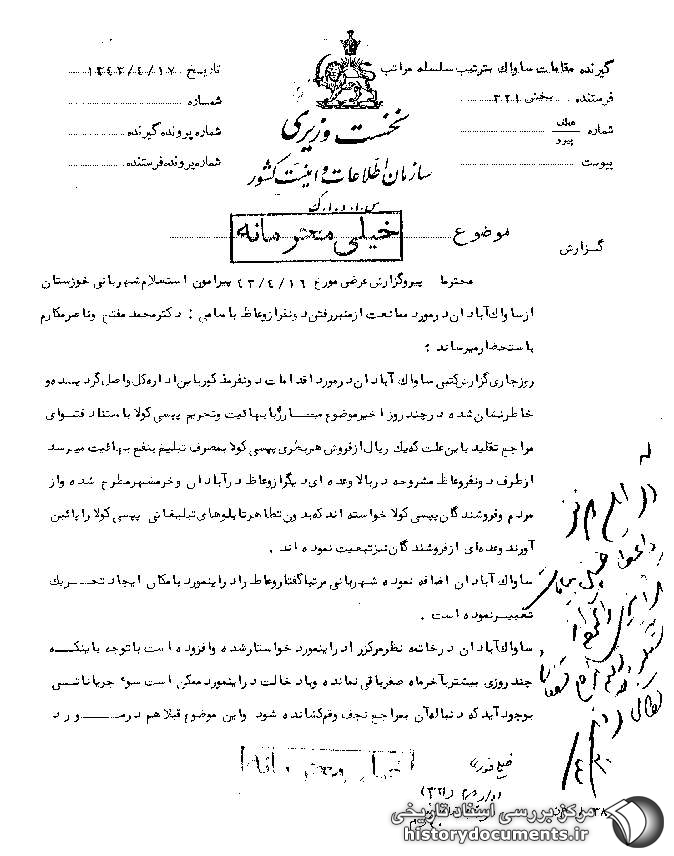 گیرنده مقامات ساواک بترتیب سلسله مراتب
فرستنده بخش ۳۲۱
شماره عطف پیرو
پیوست
تاریخ ۱۳۴۳/۴/۱۷
شماره
شماره پرونده گیرنده
شماره پرونده فرستنده
نخست وزیری
سازمان اطلاعات و امنیت کشور
س.ا.و.ا.ک
موضوع
خیلی محرمانه
گزارش
محترما پیرو گزارش عرضی مورخ ۴۳/۴/۱۶ پیرامون استعلام شهربانی خوزستان
از ساواک آبادان در مورد ممانعت از منبر رفتن دو نفر از وعاظ باسامی : دکتر محمد مفتح و ناصر مکارم
باستحضار میرساند :
روز جاری گزارش کتبی ساواک آبادان در مورد اقدامات دو نفر مذکور باین اداره کل واصل گردیده و
خاطرنشان شده در چند روز اخیر موضوع مبارزه با بهائیت و تحریم پپسی کولا باستناد فتوای
مراجع تقلید باین علت که یک ریال از فروش هر بطری پپسی کولا بمصرف تبلیغ بنفع بهائیت میرسد
از طرف دو نفر وعاظ مشروحه در بالا و عده ای دیگر از وعاظ در آبادان و خرمشهر مطرح شده و از
مردم و فروشندگان پپسی کولا خواسته اند که بدون تظاهر تابلوهای تبلیغاتی پپسی کولا را پائین
آورند و عده ای از فروشندگان نیز تبعیت نموده اند .
ساواک آبادان اضافه نموده شهربانی مرتبا گفتار وعاظ را در اینمورد بامکان ایجاد تحریک
تعبیر نموده است .
ساواک آبادان در خاتمه نظر مرکز را در اینمورد خواستار شده و افزوده است با توجه باینکه
چند روزی بیشتر بآخر ماه صفر باقی نمانده و دخالت در اینمورد ممکن است سوء جریاناتی
بوجود آید که دنباله آن بمراجع نجف و قم کشانده شود واین موضوع قبلا هم در مورد
خیلی محرمانه
خیلی فوری
مرکز بررسی اسناد تاریخی
historydocuments.ir